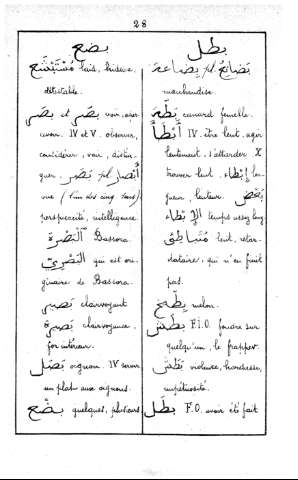 28
بضع
مُسْتَبْشَع laid, hideux,
détestable.
بَصَر et بَصُر voir, aper-
cevoir. IV et V. observer,
considérer, voir, distin-
guer. بَصَر pl أَبْصَار
vue (l'un des cinq sens)
perspicacité, intelligence.
الْبَصْرَة Bassora.
الْبَصْرِيّ qui est ori-
ginaire de Bassora.
بَصِير clairvoyant
بَصِيرَة clairvoyance,
for intérieur.
بَصَل oignon. IV servir
un plat aux oignons.
بِضْع quelques, plusieurs
بطل
بِضَاعَة pl بَضَائِع
marchandise.
بَطَّة canard femelle.
أَبْطَأَ IV. être lent, agir
lentement, s'attarder X
trouver lent. إِبْطَاء len-
gueur, lenteur. بَعْضَ
الإِبْطَاء temps assez long
مُتَبَاطِئ lent, retar-
dataire, qui n'en finit
pas.
بِطِّيخ melon.
بَطَش F.I.O. fondre sur
quelqu'un, le frapper.
بَطْش violence, hardiesse,
impétuosité.
بَطَل F.O. avoir été fait